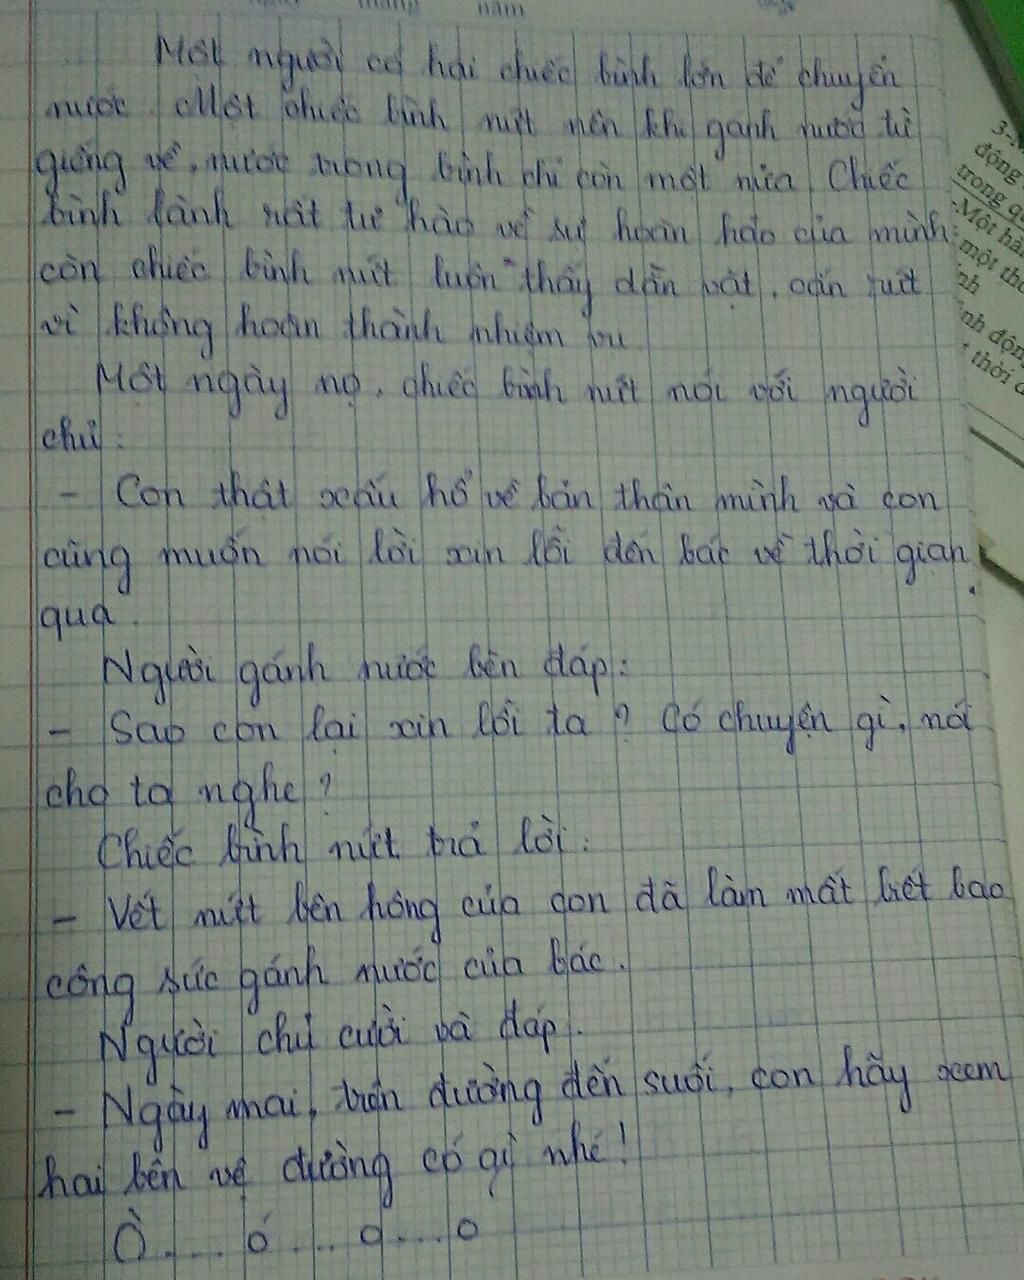 tháng năm
Một người có hai chiếc bình lớn để chuyển
nước. Một chiếc bình nứt nên khi gánh nước từ
giếng về, nước trong bình chỉ còn một nửa Chiếc
bình lành rất tự hào về sự hoàn hảo của mình
còn chiếc bình nứt luôn thấy dằn vặt, cắn rứt
vì không hoàn thành nhiệm vụ
Một ngày nọ, chiếc bình nứt nói với người
chủ:
- Con thật xấu hổ về bản thân mình và con
cũng muốn nói lời xin lỗi đến bác về thời gian
qua.
Người gánh nước bèn đáp:
- Sao con lại xin lỗi ta? Có chuyện gì, nói
cho ta nghe?
Chiếc bình nứt trả lời:
- Vết nứt bên hông của con đã làm mất biết bao
công sức gánh nước của bác.
Người chủ cười và đáp.
- Ngày mai, trên đường đến suối, con hãy xem
hai bên vệ đường có gì nhé!
Ồ....ó...o...o
động
trong
-Một
một
thời